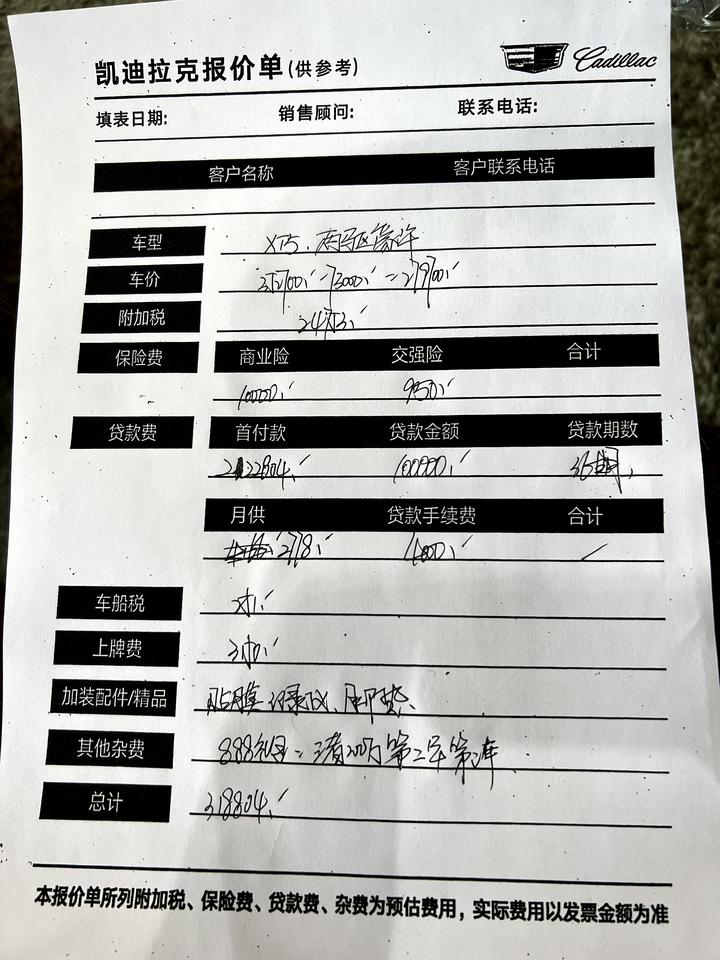 凯迪拉克报价单(供参考) Cadillac
填表日期: 销售顾问: 联系电话:
客户名称 客户联系电话
车型 XT5.
车价 352700.-73000.=279700.
附加税 24753.
保险费 商业险 交强险 合计
10000. 950.
贷款费 首付款 贷款金额 贷款期数
100000. 36期
月供 贷款手续费 合计
2778. /
车船税
上牌费
加装配件/精品 贴膜 记录仪、脚垫.
其他杂费 888 第二年 第三年
总计 318804.
本报价单所列附加税、保险费、贷款费、杂费为预估费用，实际费用以发票金额为准